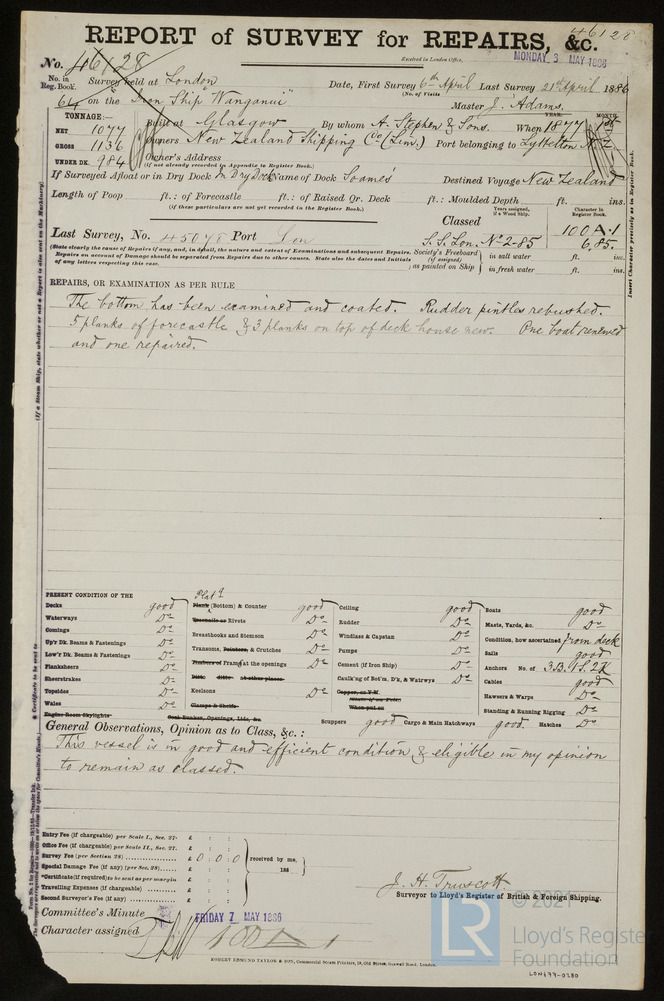 46128
REPORT of SURVEY for REPAIRS, &c.
Received in London Office, MONDAY 3 MAY 1886
No. 46128
No. in Reg. Book. Survey held at London Date, First Survey 6th April Last Survey 21st April 1886
(No. of Visits
614 on the "Iron Ship "Wanganui" Master J. Adams.
TONNAGE:— Built at Glasgow By whom A. Stephen & Sons. When 1877
YEAR. MONTH.
NET 1077
GROSS 1136 Owners New Zealand Shipping Co (Lim.) Port belonging to Lyttelton N.Z.
UNDER DK. 984 Owner's Address
(if not already recorded in Appendix to Register Book.)
If Surveyed Afloat or in Dry Dock In Dry Dock Name of Dock Soames' Destined Voyage New Zealand
Length of Poop ft.: of Forecastle ft.: of Raised Qr. Deck ft.: Moulded Depth ft. ins.
(if these particulars are not yet recorded in the Register Book.)
Classed
Years assigned, if a Wood Ship. Character in Register Book.
Last Survey, No. 45078 Port Lon S.S. Lon. No 2-85 100 A.1
6,85.
(State clearly the cause of Repairs if any, and, in detail, the nature and extent of Examinations and subsequent Repairs.
Repairs on account of Damage should be separated from Repairs due to other causes. State also the dates and Initials
of any letters respecting this case.
Society's Freeboard (if assigned) as painted on Ship in salt water ft. ins.
in fresh water ft. ins.
REPAIRS, OR EXAMINATION AS PER RULE
The bottom has been examined and coated. Rudder pintles rebushed.
5 planks of forecastle & 3 planks on top of deck house new. One boat renewed
and one repaired.
PRESENT CONDITION OF THE
Decks good
Waterways Do
Comings Do
Up'r Dk. Beams & Fastenings Do
Low'r Dk. Beams & Fastenings Do
Planksheers Do
Sheerstrakes Do
Topsides Do
Wales Do
Engine Room Skylights
Plat'g
Plank (Bottom) & Counter good
Treenails or Rivets Do
Breasthooks and Stemson Do
Transoms, Pointers, & Crutches Do
Timbers of Frames at the openings Do
Ditto ditto at other places
Keelsons Do
Clamps & Shelfs
Coal Bunker, Openings, Lids, &c.
Ceiling good
Rudder Do
Windlass & Capstan Do
Pumps Do
Cement (if Iron Ship) Do
Caulk'ng of Bot'm, D'k, & Watrwys Do
Copper, or Y.M.
When put on
Scuppers good Cargo & Main Hatchways good. Hatches Do
Boats good
Masts, Yards, &c. Do
Condition, how ascertained from deck
Sails good
Anchors No. of 3B. 1S. 2K
Cables good
Hawsers & Warps Do
Standing & Running Rigging Do
General Observations, Opinion as to Class, &c. :
This vessel is in good and efficient condition & eligible in my opinion
to remain as classed.
Entry Fee (if chargeable) per Scale I., Sec. 27- £ : :
Office Fee (if chargeable) per Scale II., Sec. 27. £ : :
Survey Fee (per Section 28) £ 0 : 0 : 0 received by me,
Special Damage Fee (if any) (per Sec. 28) £ : : 188
Certificate (if required) to be sent as per margin
Travelling Expenses (if chargeable) £ : :
Second Surveyor's Fee (if any) £ : :
J. H. Truscott
Surveyor to Lloyd's Register of British & Foreign Shipping.
Committee's Minute FRIDAY 7 MAY 1886
Character assigned 100 A 1
ROBERT EDMUND TAYLOR & SON, Commercial Steam Printers, 19, Old Street, Goswell Road, London.
© 2021
LR
Lloyd's Register
Foundation
LON677-0280